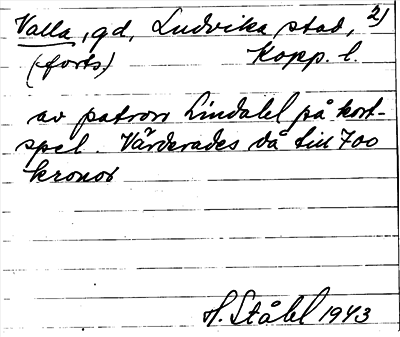 Valla, gd, Ludvika stad, 2)
(forts.) Kopp. l.
av patron Lindahl på kort-
spel. Värderades då till 700
kronor
H. Ståhl 1943